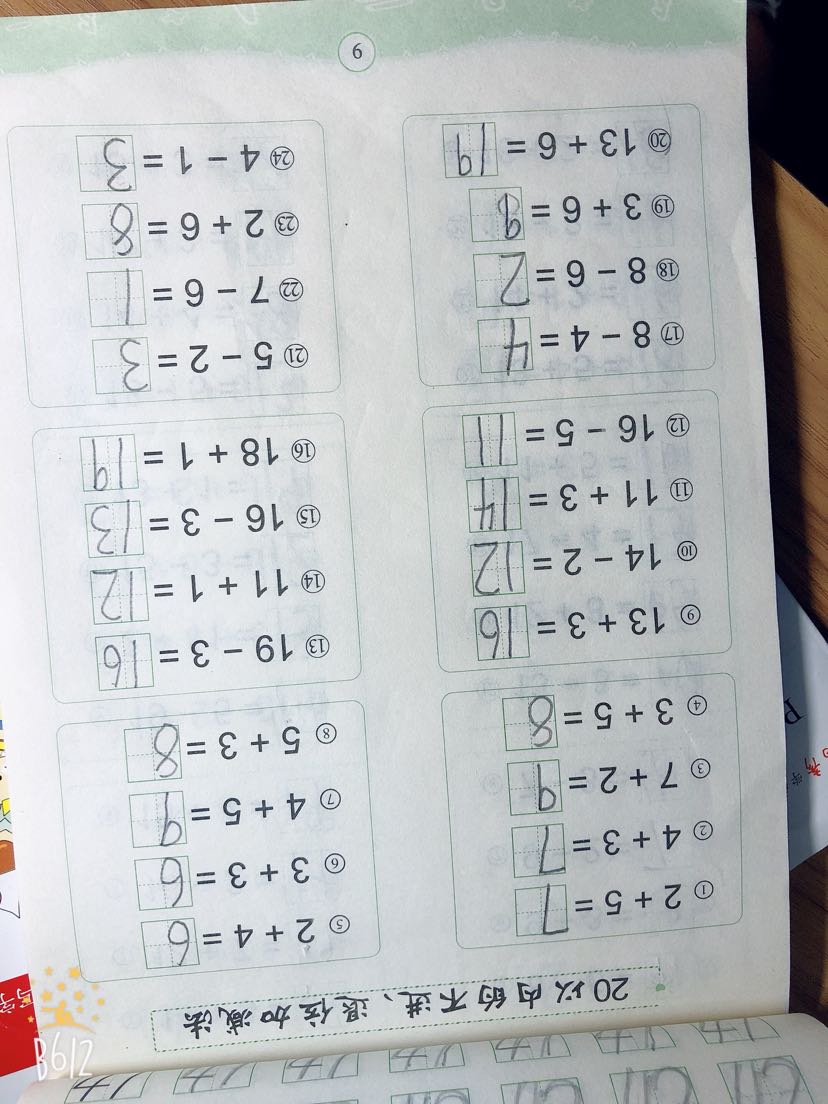 20以内的不进、退位加减法
① 2 + 5 = 7
② 4 + 3 = 7
③ 7 + 2 = 9
④ 3 + 5 = 8
⑤ 2 + 4 = 6
⑥ 3 + 3 = 6
⑦ 4 + 5 = 9
⑧ 5 + 3 = 8
⑨ 13 + 3 = 16
⑩ 14 − 2 = 12
⑪ 11 + 3 = 14
⑫ 16 − 5 = 11
⑬ 19 − 3 = 16
⑭ 11 + 1 = 12
⑮ 16 − 3 = 13
⑯ 18 + 1 = 19
⑰ 8 − 4 = 4
⑱ 8 − 6 = 2
⑲ 3 + 6 = 9
⑳ 13 + 6 = 19
㉑ 5 − 2 = 3
㉒ 7 − 6 = 1
㉓ 2 + 6 = 8
㉔ 4 − 1 = 3
6
B612